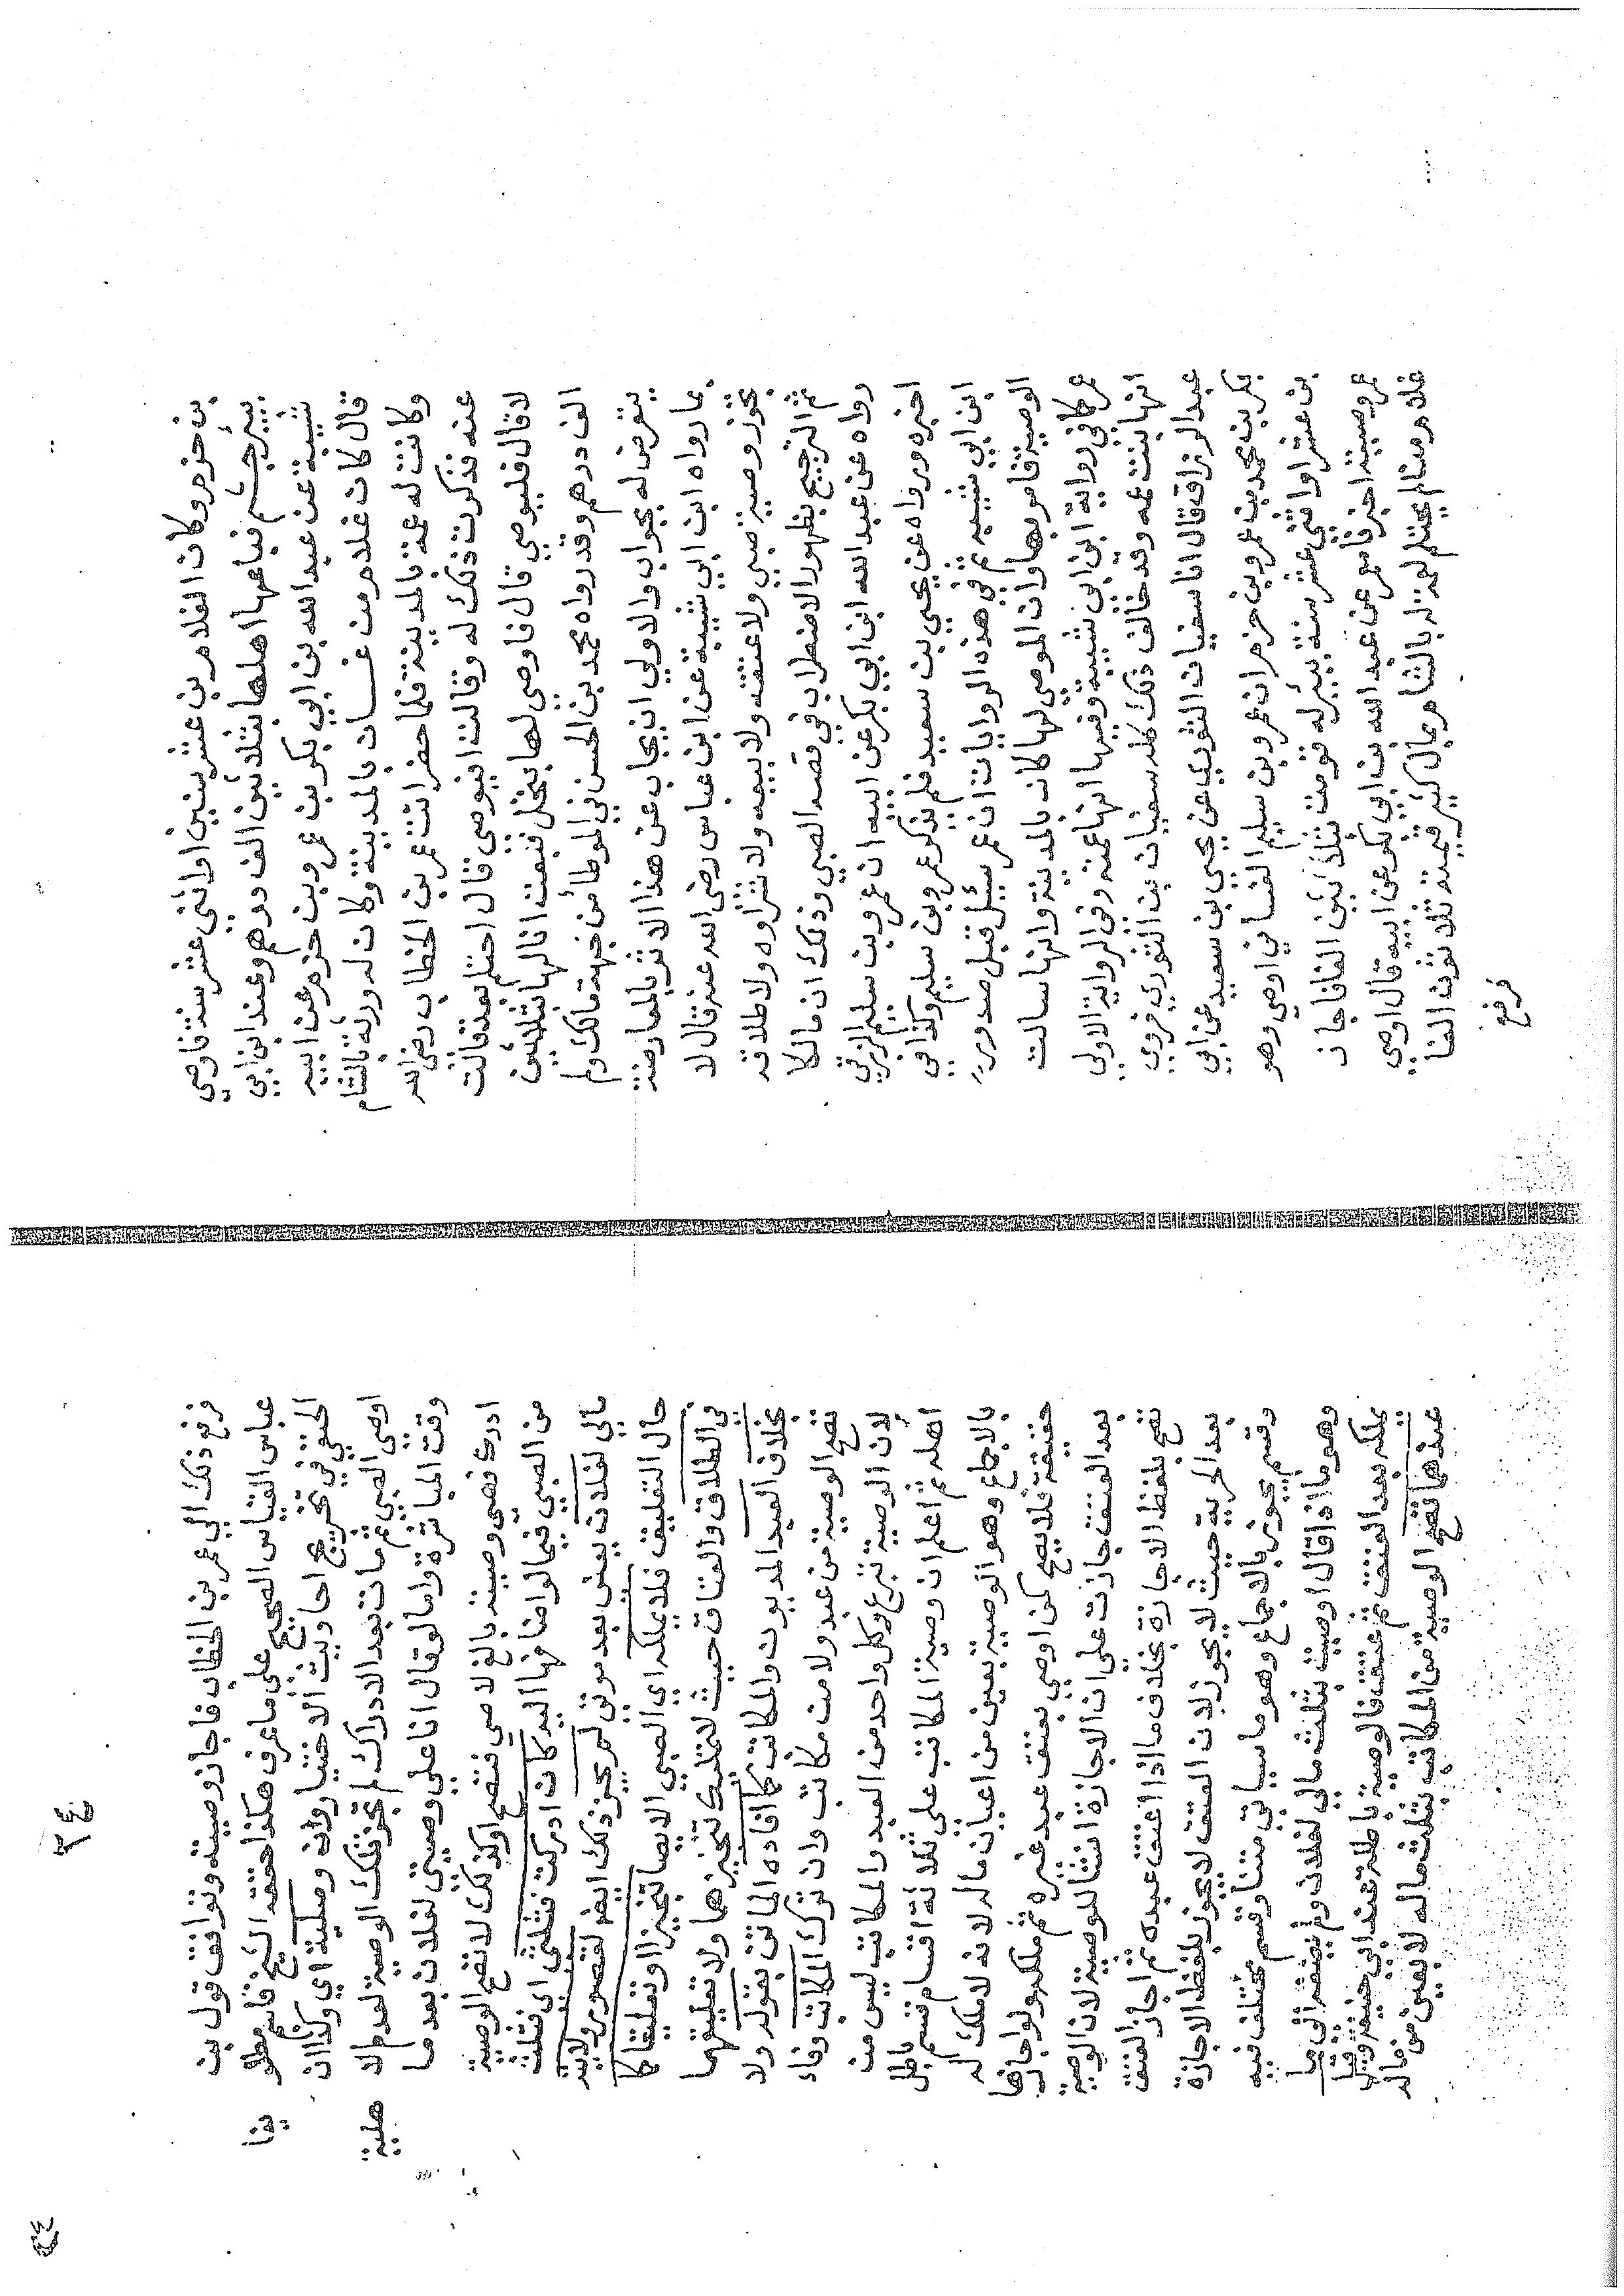 بن حزم وكان الغلام بن عشر سنين او اثني عشر سنة فاوصي
ببئر جشم فباعها اهلها بثلاثين الف درهم وعند ابن ابي
شيبة عن عبد الله بن ابي بكر بن عمرو بن حزم عن ابيه
قال كان غلام من غسان بالمدينة وكان له ورثة بالشام
وكانت له عمة بالمدينة فلما حضر اتت عمر بن الخطاب رضي الله
عنه فذكرت ذلك له وقالت افيوصي قال احتلم بعد قالت
لا قال فليوصي قال فاوصى لها بنخل فبعت انا لها بثلاثين
الف درهم وقد رواه محمد بن الحسن في الموطأ من جهة مالك ولم
يتعرض له بجواب والاولى ان يجاب عن هذا الاثر بالمعارضة
بما رواه ابن ابي شيبة عن ابن عباس رضى الله عنه قال لا
تجوز وصية صبي ولا عتقه ولا بيعه ولا شراوه ولا طلاقه
ثم الترجيح بظهور الاضطراب في قصة الصبي وذلك ان مالكا
رواه عن عبد الله ابن ابي بكر عن ابيه ان عمرو بن سليم الزرقي
اخبره ورواه عن يحيى بن سعيد فلم يذكر عمرو بن سليم وكذا في
ابن ابي شيبه ثم في هذه الروايات ان عمر سئيل قبل صدور
الوصية فامر بها وان الموصي لها كان بالمدينة وانها سالت
عمر كما في رواية ابن ابي شيبة وفيها انها عمته وفى الرواية الاولى
انها بنت عمه وقد خالف ذلك كله سفيان بن الثوري فروي
عبد الرزاق قال انا سفيان الثوري عن يحيى بن سعيد عن ابي
بكر بن محمد بن عمرو بن حزم ان عمرو بن سليم الغساني اوصي وهو
بن عشر او اثني عشر سنة ببئر له قومت بثلاثين الفا فاجاز
عمر وصيته اخبرنا معمر عن عبد الله بن ابي بكر عن ابيه قال اوصي
غلام منا لم يحتلم لعمة له بالشام بمال كثير قيمته ثلاثون الفا
فرفع
٣٤
فرفع ذلك الى عمر بن الخطاب فاجاز وصيته وتوافق قول بن
عباس القياس الصحيح على ما عرف هكذا حققه الشيخ قاسم قطلو
يغا
الحنفي في تخريج احاديث الاختيار وانه وصلية اي وكذا ان
اوصى الصبي ثم مات بعد الادراك لم تجز تلك الوصية لعدم الا
هلية
وقت المباشرة واما لو قال انا على وصيتى لفلان بعد ما
ادرك فهي وصية بالغ لا صبي فتصح وكذلك لا تصح الوصية
من الصبي فيما لو اضافها اليه كان ادركت فثلثى اى فثلث
مالي لفلان يعني بعد موتى لم يجز ذلك ايضر لقصور ولايته
حال التعليق فلا يملكه اي الصبي الايصا تنجيزا او تعليقا كما
في الطلاق والعتاق حيث لا تمليك تنجيزهما ولا تعليقهما
بخلاف العبد المديون والمكاتب كما افاده الماتن بقوله ولا
تصح الوصية من عبد ولا من مكاتب وان ترك المكاتب وفاء
لان الوصية تبرع وكل واحد من العبد والمكاتب ليس من
اهله ثم اعلم ان وصية المكاتب على ثلاثة اقسام قسم باطل
بالاجماع وهو الوصية بعين من اعيان ماله لانه لا ملك له
حقيقة فلا يصح كمن اوصي بعتق عبد غيره ثم ملكه ولو اجازها
بعد العتق جازت على ان الاجازة انشا للوصية لان الوصية
تصح بلفظ الاجازة بخلاف ما اذا اعتق عبده ثم اجاز العتق
بعد الحرية حيث لا يجوز لان العتق لا يجوز بلفظ الاجازة
وقسم يجوز بالاجماع وهو ما سياتى متنا وقسم مختلف فيه
وهو ما اذا قال اوصيت بثلث مالي لفلان ولم يضفه الى ما
يملكه بعد العتق ثم عتق فالوصية باطلة عند ابي حنيفة وقالا
عندهما تصح الوصية من المكاتب بثلث ماله لا بعين من ماله
٣٤